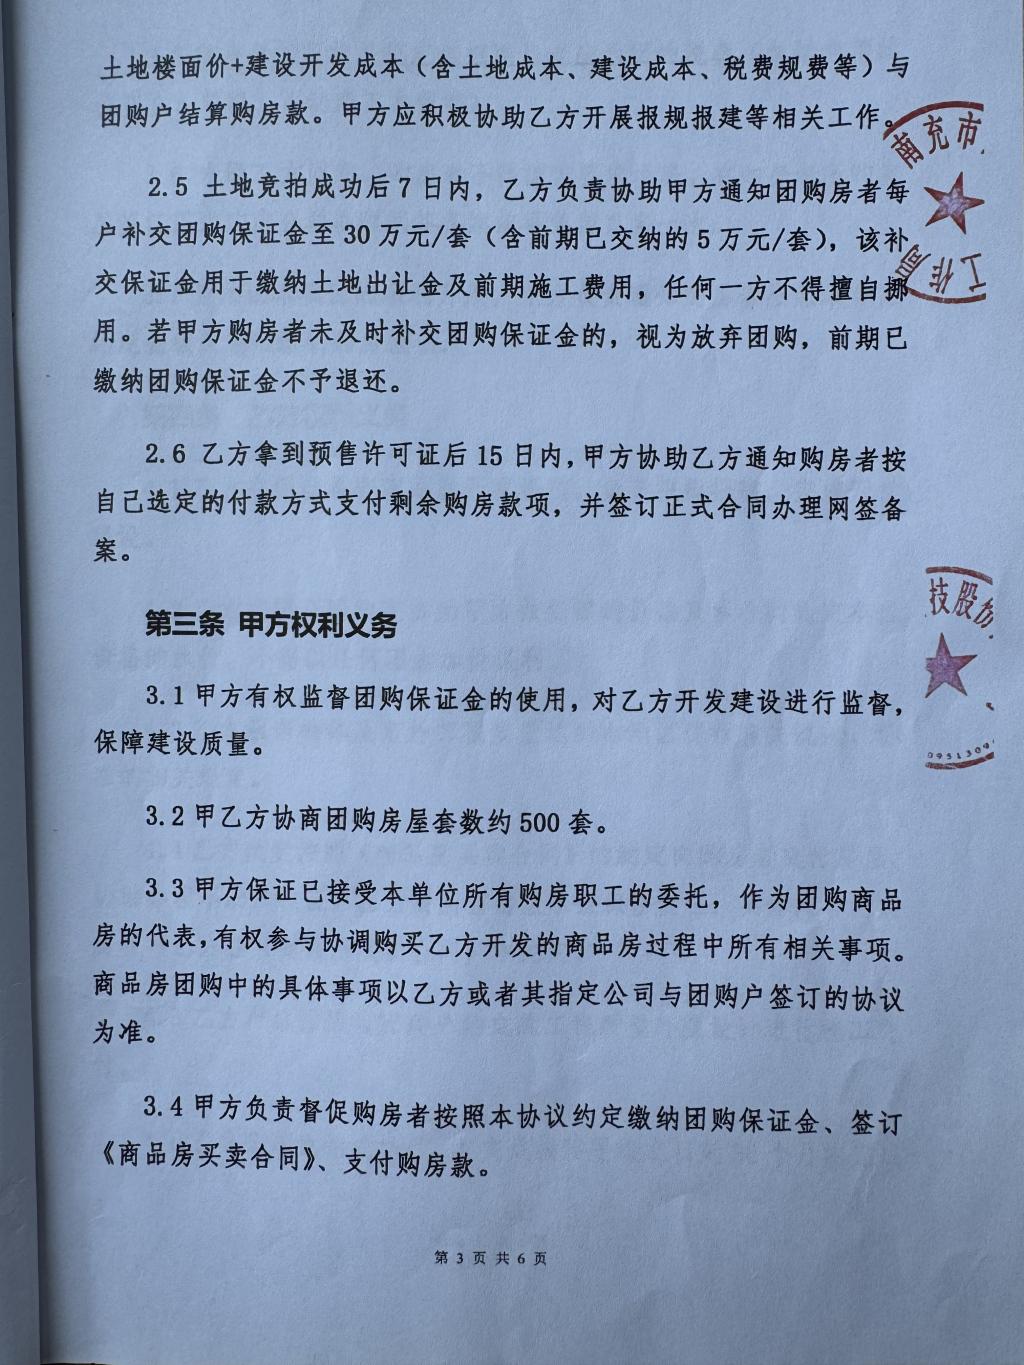 土地楼面价+建设开发成本（含土地成本、建设成本、税费规费等）与
团购户结算购房款。甲方应积极协助乙方开展报规报建等相关工作。
南充市
2.5 土地竞拍成功后7日内，乙方负责协助甲方通知团购房者每
户补交团购保证金至30万元/套（含前期已交纳的5万元/套），该补
交保证金用于缴纳土地出让金及前期施工费用，任何一方不得擅自挪
工作局
用。若甲方购房者未及时补交团购保证金的，视为放弃团购，前期已
缴纳团购保证金不予退还。
2.6 乙方拿到预售许可证后15日内，甲方协助乙方通知购房者按
自己选定的付款方式支付剩余购房款项，并签订正式合同办理网签备
案。
技股份
第三条 甲方权利义务
3.1 甲方有权监督团购保证金的使用，对乙方开发建设进行监督，
保障建设质量。
3.2 甲乙方协商团购房屋套数约500套。
3.3 甲方保证已接受本单位所有购房职工的委托，作为团购商品
房的代表，有权参与协调购买乙方开发的商品房过程中所有相关事项。
商品房团购中的具体事项以乙方或者其指定公司与团购户签订的协议
为准。
3.4 甲方负责督促购房者按照本协议约定缴纳团购保证金、签订
《商品房买卖合同》、支付购房款。
第 3 页 共 6 页